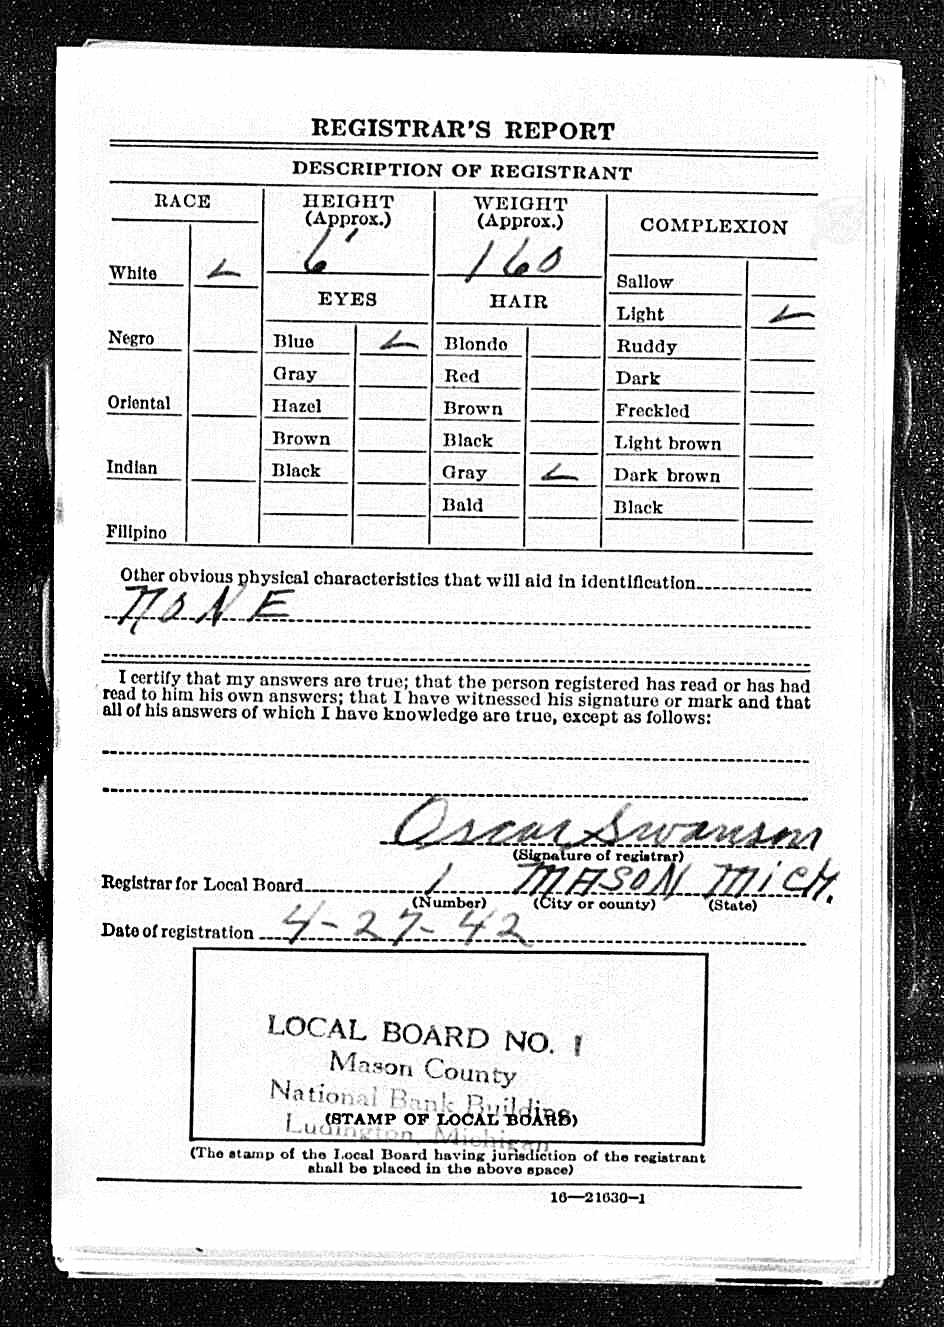 REGISTRAR'S REPORT
DESCRIPTION OF REGISTRANT
RACE
HEIGHT
(Approx.)
WEIGHT
(Approx.)
COMPLEXION
6'
160
White
Sallow
EYES
HAIR
Light
Negro
Blue
Blonde
Ruddy
Gray
Red
Dark
Oriental
Hazel
Brown
Freckled
Brown
Black
Light brown
Indian
Black
Gray
Dark brown
Bald
Black
Filipino
Other obvious physical characteristics that will aid in identification
NONE
I certify that my answers are true; that the person registered has read or has had
read to him his own answers; that I have witnessed his signature or mark and that
all of his answers of which I have knowledge are true, except as follows:
Oscar Swanson
(Signature of registrar)
Registrar for Local Board 1 MASON MICH.
(Number) (City or county) (State)
Date of registration 4-27-42
LOCAL BOARD NO. 1
Mason County
National Bank Building
(STAMP OF LOCAL BOARD)
Ludington, Michigan
(The stamp of the Local Board having jurisdiction of the registrant
shall be placed in the above space)
16—21630-1